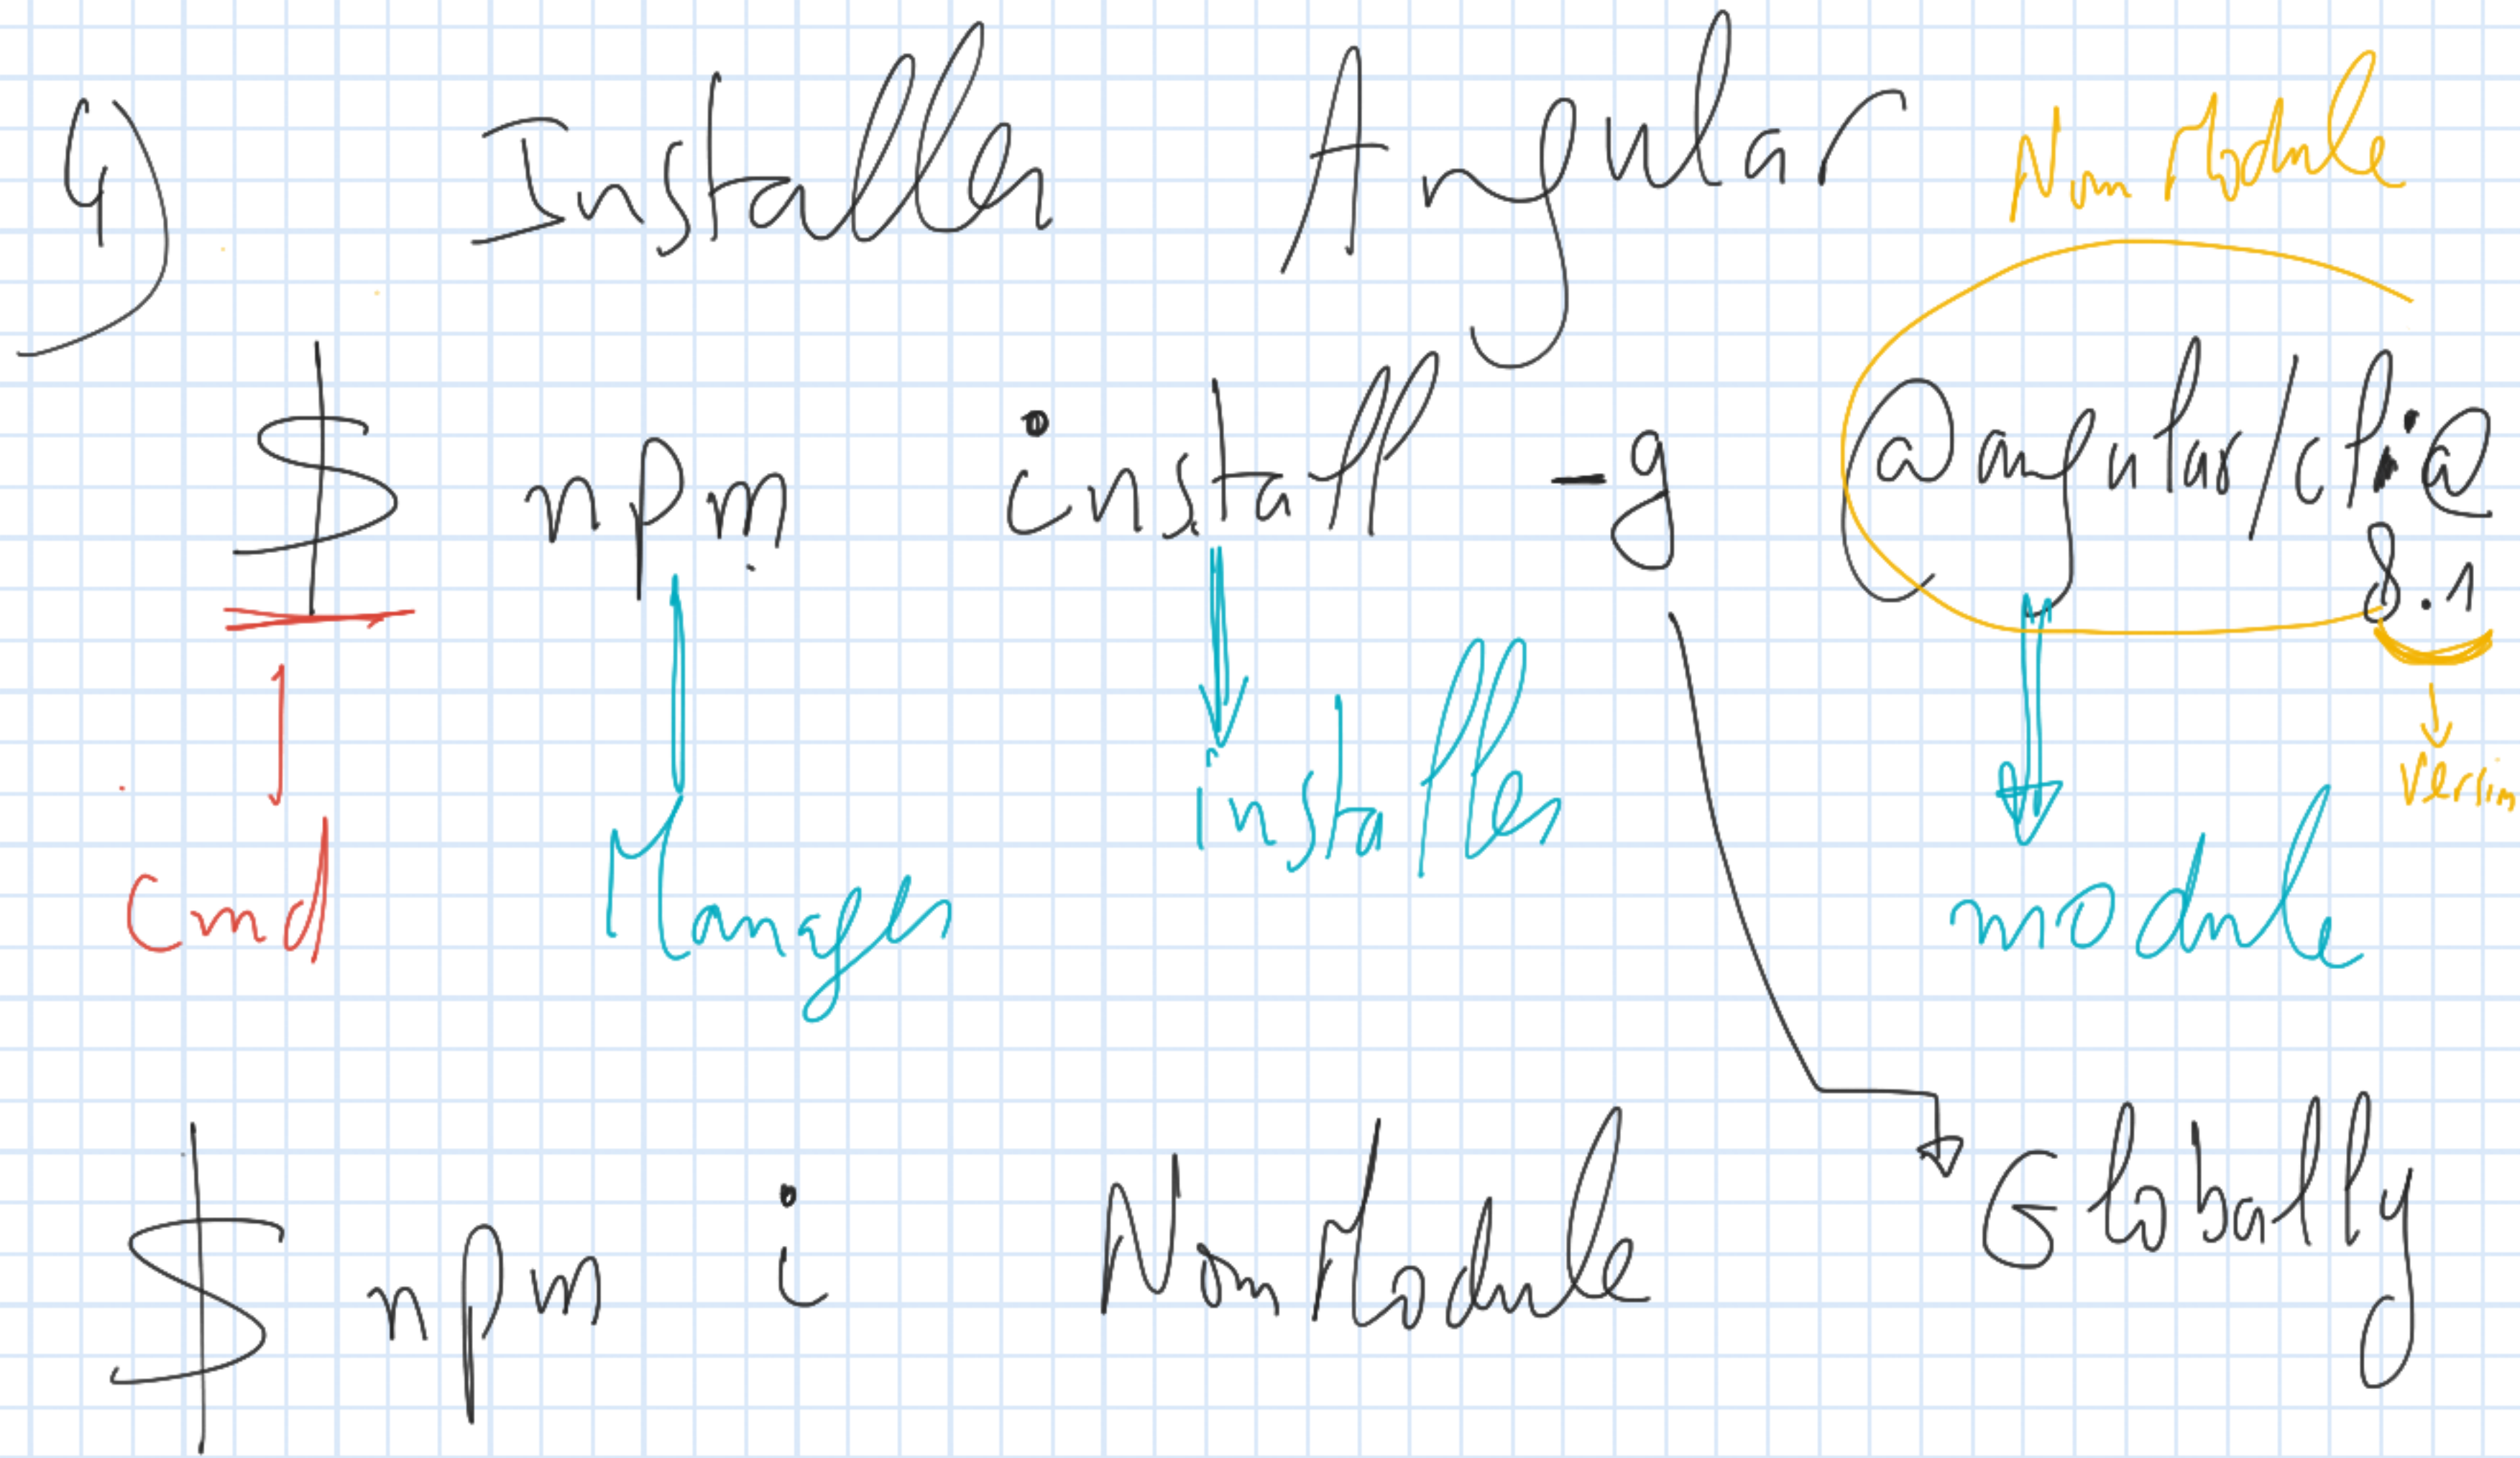 4) Installer Angular Nom Module
$ npm install -g @angular/cli@
8.1
version
installer
cmd Manager module
Globally
$ npm i Nom Module